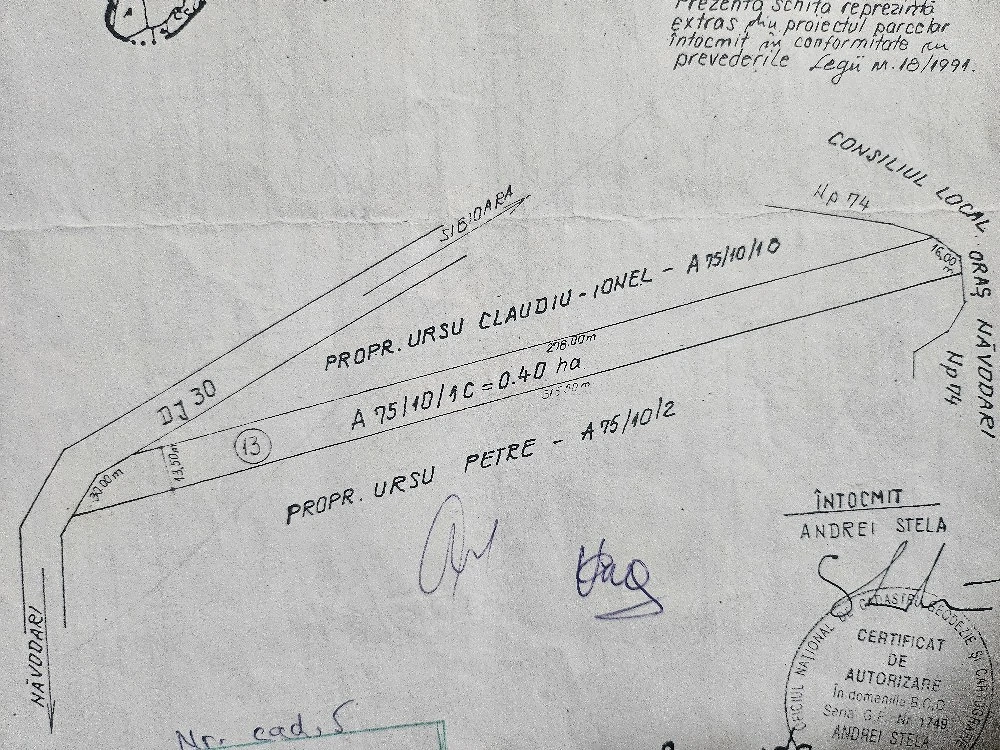 Prezenta schița reprezintă
extras din proiectul parcelar
întocmit în conformitate cu
prevederile Legii nr. 18/1991.
CONSILIUL LOCAL ORAȘ NĂVODARI
Hp 74
SIBIOARA
16,00 m
PROPR. URSU CLAUDIU-IONEL - A 75/10/1D
298.00m
A 75/10/1C = 0.40 ha
DJ 30
Hp 74
13
13,50m
30.00m
PROPR. URSU PETRE - A 75/10/2
ÎNTOCMIT
ANDREI STELA
NĂVODARI
OFICIUL NAȚIONAL DE CADASTRU GEODEZIE ȘI
CERTIFICAT
DE
AUTORIZARE
În domeniile B.C.D
Seria G.F. Nr. 1749
ANDREI STELA
Nr. cad. 5